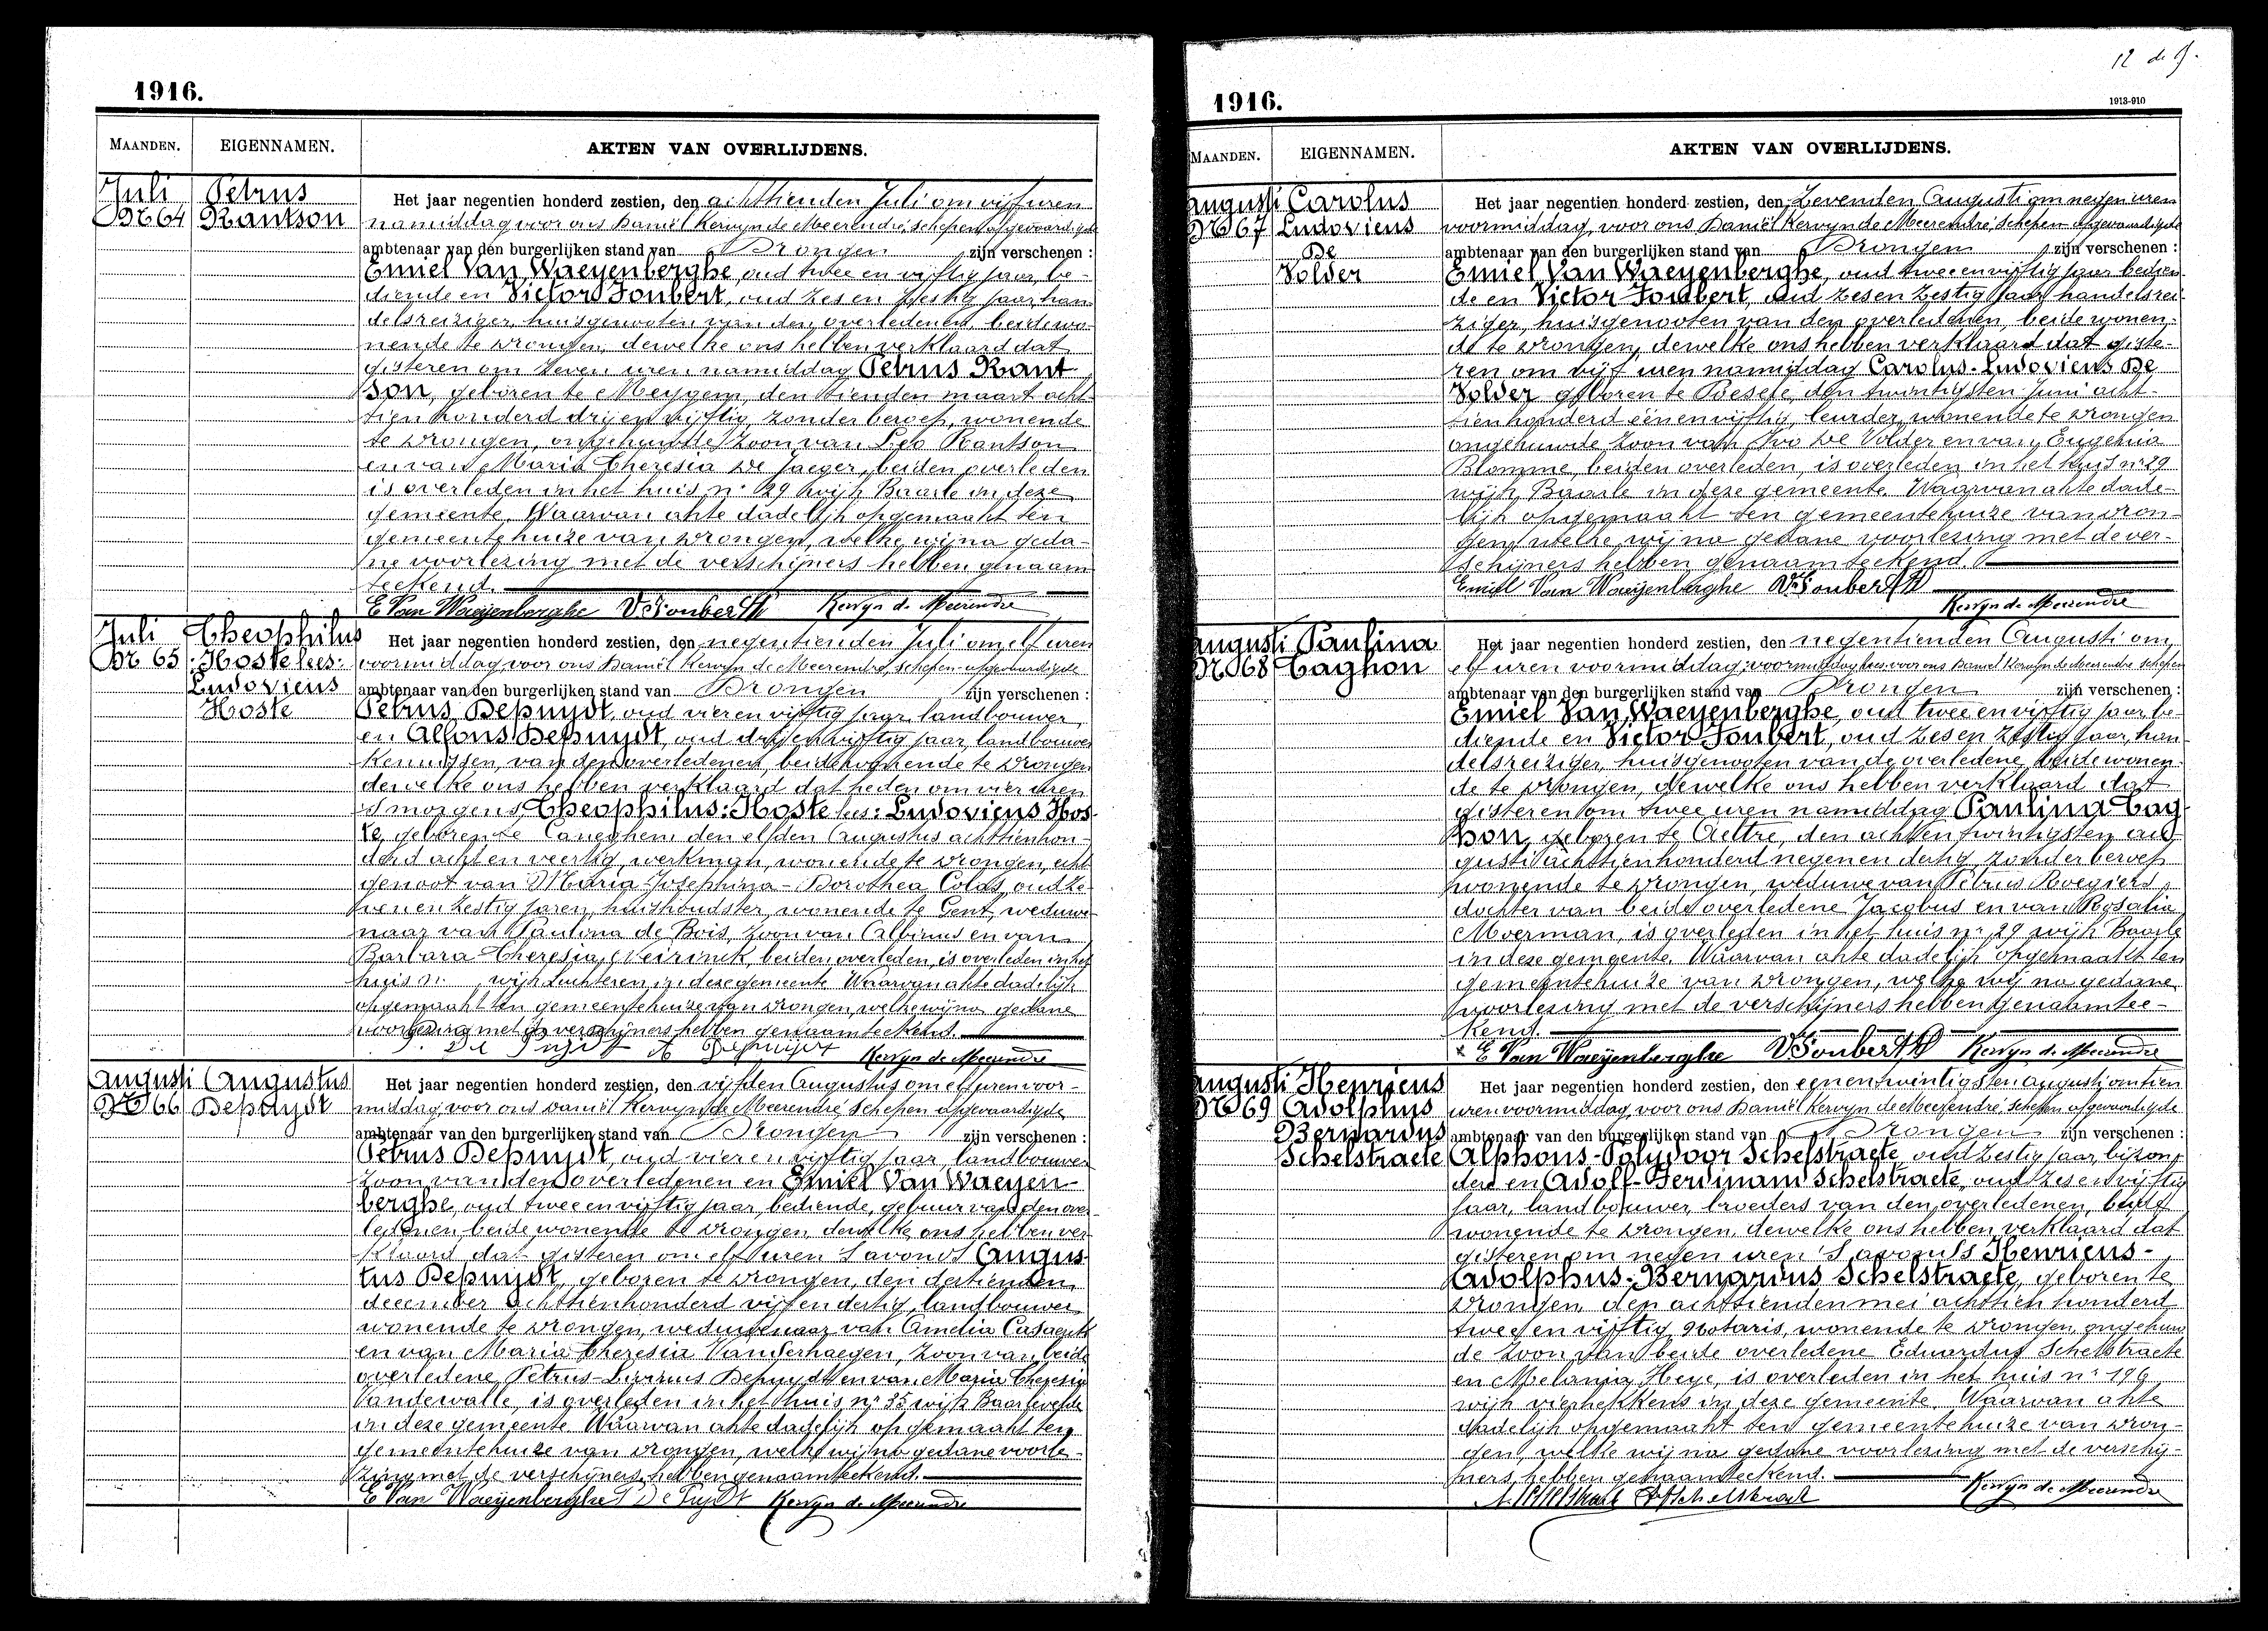 1916.
MAANDEN.
EIGENNAMEN.
AKTEN VAN OVERLIJDENS.
Juli
Nr 64
Petrus
Rantson
Het jaar negentien honderd zestien, den achttienden Juli om vijf uren
namiddag voor ons Daniël Kervyn de Meerendré, schepen afgevaardigde
ambtenaar van den burgerlijken stand van Drongen zijn verschenen :
Emiel Van Waeyenberghe, oud twee en vijftig jaar, be-
diende en Victor Joubert, oud zes en zestig jaar, han-
delsreiziger, huisgenooten van den overledenen, beide wo-
nende te Drongen, dewelke ons hebben verklaard dat
gisteren om zeven uren namiddag Petrus Rant
son, geboren te Meygem, den tienden maart acht-
tien honderd drij en vijftig, zonder beroep, wonende
te Drongen, ongehuwde zoon van Leo Rantson
en van Maria Theresia De Jaeger, beiden overleden
is overleden in het huis nr 29 wijk Baarle in deze
gemeente. Waarvan akte dadelijk opgemaakt ten
gemeentehuize van Drongen, welke wij na geda-
ne voorlezing met de verschijners hebben genaam
teekend.
E Van Waeyenberghe V. Joubert Kervyn de Meerendré
Juli
Nr 65
Theophilus
Hoste lees:
Ludovicus
Hoste
Het jaar negentien honderd zestien, den negentienden Juli om elf uren
voormiddag voor ons Daniël Kervyn de Meerendré, schepen afgevaardigde
ambtenaar van den burgerlijken stand van Drongen zijn verschenen :
Petrus Depuydt, oud vier en vijftig jaar landbouwer
en Alfons Depuydt, oud drij en vijftig jaar, landbouwer
kennissen, van den overledenen, beide wonende te Drongen
dewelke ons hebben verklaard dat heden om vier uren
's morgens, Theophilus: Hoste lees: Ludovicus Hos-
te, geboren te Caneghem den elfden Augustus achttienhon-
derd acht en veertig, werkman, wonende te Drongen, echt
genoot van Maria Josephina-Dorothea Colas, oud ze-
ven en zestig jaren, huishoudster, wonende te Gent, weduwe-
naar van Paulina de Bois, zoon van Albinus en van
Barbara Theresia Neirinck, beiden overleden, is overleden in het
huis nr wijk Luchteren in deze gemeente Waarvan akte dadelijk
opgemaakt ten gemeentehuize van Drongen, welke wij na gedane
voorlezing met de verschijners hebben genaamteekend.
P. De Puydt A Depuydt Kervyn de Meerendré
Augusti
Nr 66
Augustus
Depuydt
Het jaar negentien honderd zestien, den vijfden Augustus om elf uren voor-
middag voor ons Daniël Kervyn de Meerendré schepen afgevaardigde
ambtenaar van den burgerlijken stand van Drongen zijn verschenen :
Petrus Depuydt, oud vier en vijftig jaar, landbouwer
zoon van den overledenen en Emiel Van Waeyen-
berghe, oud twee en vijftig jaar, bediende, gebuur van den over
ledenen beide wonende te Drongen, dewelke ons hebben ver
klaard dat gisteren om elf uren 's avonds Augus-
tus Depuydt, geboren te Drongen, den dertienden
december achttienhonderd vijf en dertig, landbouwer
wonende te Drongen, weduwenaar van Amelia Casaert
en van Maria Theresia Vanderhaegen, zoon van beide
overledene Petrus-Livinus Depuydt en van Maria Theresia
Vandewalle, is overleden in het huis nr 35 wijk Baarlevelde
in deze gemeente Waarvan akte dadelijk opgemaakt ten
gemeentehuize van Drongen, welke wij na gedane voorle-
zing met de verschijners hebben genaamteekend.
E Van Waeyenberghe P De Puydt Kervyn de Meerendré
12 de
1916.
1913-910
MAANDEN.
EIGENNAMEN.
AKTEN VAN OVERLIJDENS.
Augusti
Nr 67
Carolus
Ludovicus
De
Volder
Het jaar negentien honderd zestien, den Zevenden Augusti om negen uren
voormiddag, voor ons Daniël Kervyn de Meerendré, schepen afgevaardigde
ambtenaar van den burgerlijken stand van Drongen zijn verschenen :
Emiel Van Waeyenberghe, oud twee en vijftig jaar bedien-
de en Victor Joubert, oud zes en zestig jaar handelsrei-
ziger, huisgenooten van den overledenen, beide wonen-
de te Drongen, dewelke ons hebben verklaard dat giste-
ren om vijf uren namiddag Carolus-Ludovicus De
Volder geboren te Poesele, den twintigsten Juni acht-
tienhonderd één en vijftig, leurder, wonende te Drongen
ongehuwde zoon van Ivo De Volder en van Eugenia
Blomme, beiden overleden, is overleden in het huis nr 29
wijk Baarle in deze gemeente. Waarvan akte dade-
lijk opgemaakt ten gemeentehuize van Dron-
gen, welke wij na gedane voorlezing met de ver-
schijners hebben genaamteekend.
Emiel Van Waeyenberghe V. Joubert
Kervyn de Meerendré
Augusti
Nr 68
Paulina
Taghon
Het jaar negentien honderd zestien, den negentienden Augusti om
elf uren voormiddag: voormiddag lees voor ons Daniel Kervyn de Meerendre schepen
ambtenaar van den burgerlijken stand van Drongen zijn verschenen :
Emiel Van Waeyenberghe, oud twee en vijftig jaar, be-
diende en Victor Joubert, oud zes en zestig jaar, han-
delsreiziger, huisgenooten van de overledene, beide wonen-
de te Drongen, dewelke ons hebben verklaard dat
gisteren om twee uren namiddag Paulina Tag-
hon, geboren te Aeltre, den acht en twintigsten au-
gusti achttienhonderd negen en dertig, zonder beroep
wonende te Drongen, weduwe van Petrus Roegiers,
dochter van beide overledene Jacobus en van Rosalia
Moerman, is overleden in het huis nr 29 wijk Baarle
in deze gemeente. Waarvan akte dadelijk opgemaakt ten
gemeentehuize van Drongen, welke wij na gedane
voorlezing met de verschijners hebben genaamtee-
kend.
E Van Waeyenberghe V Joubert Kervyn de Meerendré
Augusti
Nr 69
Henricus
Adolphus
Bernardus
Schelstraete
Het jaar negentien honderd zestien, den eenentwintigsten augusti om tien
uren voormiddag, voor ons Daniël Kervyn de Meerendré, schepen afgevaardigde
ambtenaar van den burgerlijken stand van Drongen zijn verschenen :
Alphons-Polydoor Schelstraete, oud zestig jaar, bijzon-
der en Adolf-Ferdinand Schelstraete, oud zes en vijftig
jaar, landbouwer, broeders van den overledenen, beide
wonende te Drongen, dewelke ons hebben verklaard dat
gisteren om negen uren 's avonds Henricus-
Adolphus-Bernardus Schelstraete, geboren te
Drongen, den achttienden mei achttien honderd
twee en vijftig, Notaris, wonende te Drongen, ongehuw
de zoon van beide overledene Eduardus Schelstraete
en Melania Heye, is overleden in het huis nr 196
wijk vierhekkens in deze gemeente. Waarvan akte
dadelijk opgemaakt ten gemeentehuize van Dron-
gen, welke wij na gedane voorlezing met de verschij-
ners, hebben genaamteekend.
A. Schelstraete Schelstraete Kervyn de Meerendré